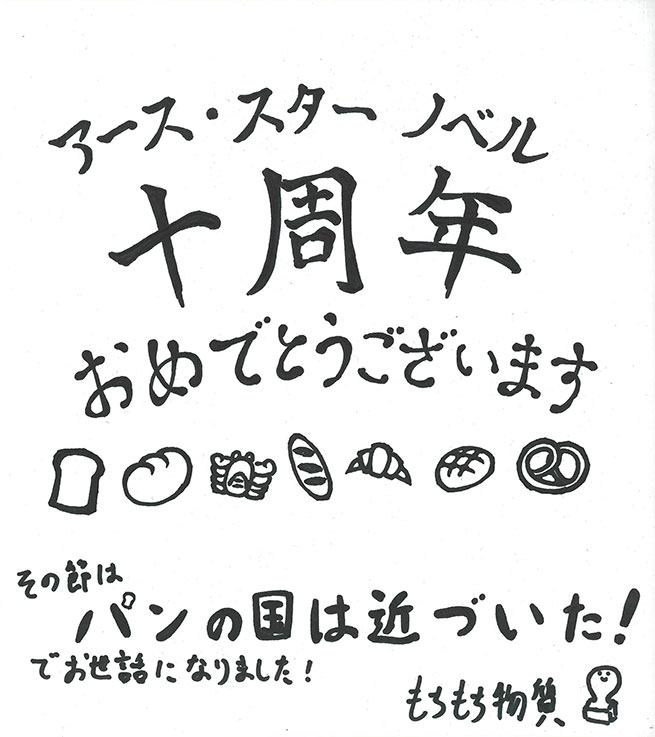 アース・スター ノベル
十周年
おめでとうございます
その節は
パンの国は近づいた!
でお世話になりました!
もちもち物質